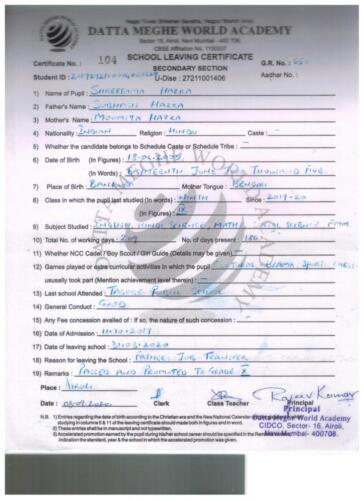 Nagar Yuwak Shikshan Sanstha, Nagpur
DATTA MEGHE WORLD ACADEMY
Sector 16, Airoli, Navi Mumbai - 400 708.
CBSE Affiliation No. 1130037
SCHOOL LEAVING CERTIFICATE
Certificate No. : 104 G.R. No. :
SECONDARY SECTION
Student ID : U-Dise : 27211001406 Aadhar No. :
1) Name of Pupil : SHREETAMA HAZRA
2) Father's Name : SUBHASH HAZRA
3) Mother's Name : MOUMITA HAZRA
4) Nationality : INDIAN Religion : HINDU Caste : -
5) Whether the candidate belongs to Schedule Casts or Schedule Tribe : -
6) Date of Birth (In Figures) : 18.06.2005
(In Words) : EIGHTEENTH JUNE TWO THOUSAND FIVE.
7) Place of Birth : Mother Tongue : BENGALI
8) Class in which the pupil last studied (In Words) : NINTH Since : 2019-20
(In Figures) : IX
9) Subject Studied : ENGLISH, HINDI, SCIENCE, MATHS, SOCIAL SCIENCE,
10) Total No. of working days : No. of days present : 186
11) Whether NCC Cadet / Boy Scout / Girl Guide (Details may be given) : -
12) Games played or extra curricular activities in which the pupil DRAMA
ususally took part (Mention achievement level therein) : -
13) Last school Attended : TAGORE PUBLIC SCHOOL
14) General Conduct : GOOD
15) Any Fee concession availed of : If so, the nature of such concession : -
16) Date of Admission :
17) Date of leaving school : 31.03.2020
18) Reason for leaving the School : FATHER'S JOB TRANSFER
19) Remarks : PASSED AND PROMOTED TO GRADE X
Place : AIROLI
Date : Clerk Class Teacher Principal
Rajeev Kumar
Principal
Datta Meghe World Academy
CIDCO, Sector- 16, Airoli,
Navi Mumbai- 400708.
N.B. 1) Entries regarding the date of birth according to the Christian era and the New National Calender
studying in columns 6 & 11 of the leaving certificate should made both in figures and in word.
2) These entries shall be in manuscript and not typewritten.
3) Accelerated promotion earned by the pupil during his/her school career should be specified in the Remarks
indication the standard, year & the school in which the accelerated promotion was given.
DATTA MEGHE WORLD ACADEMY